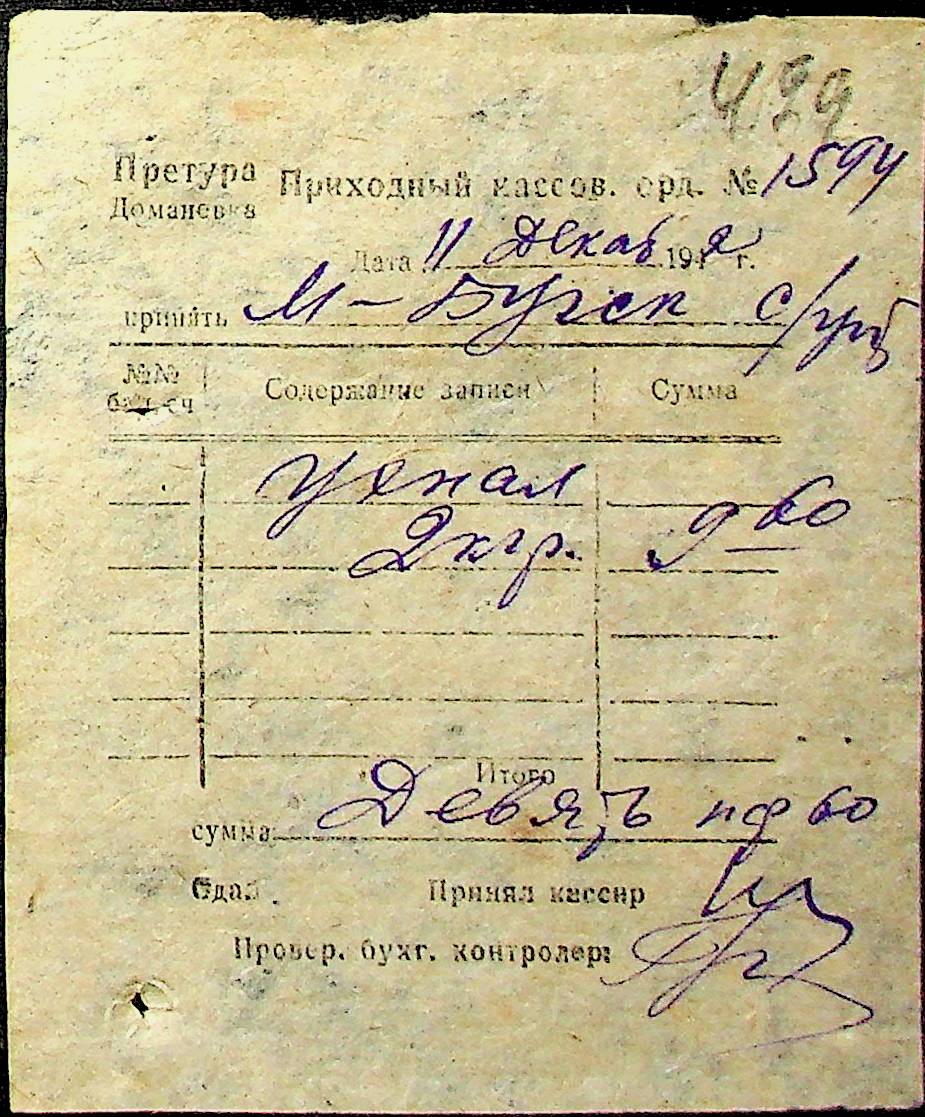 499
Претура Приходный кассов. орд. № 1594
Доманевка
Дата 11 Декаб 1942 г.
принять М-Бугск с/упр
№№ Содержание записи Сумма
бал. сч
2 кгр. 9 60
Итого
сумма Девять пф 60
Сдал. Принял кассир
Провер. бухг. контролер: